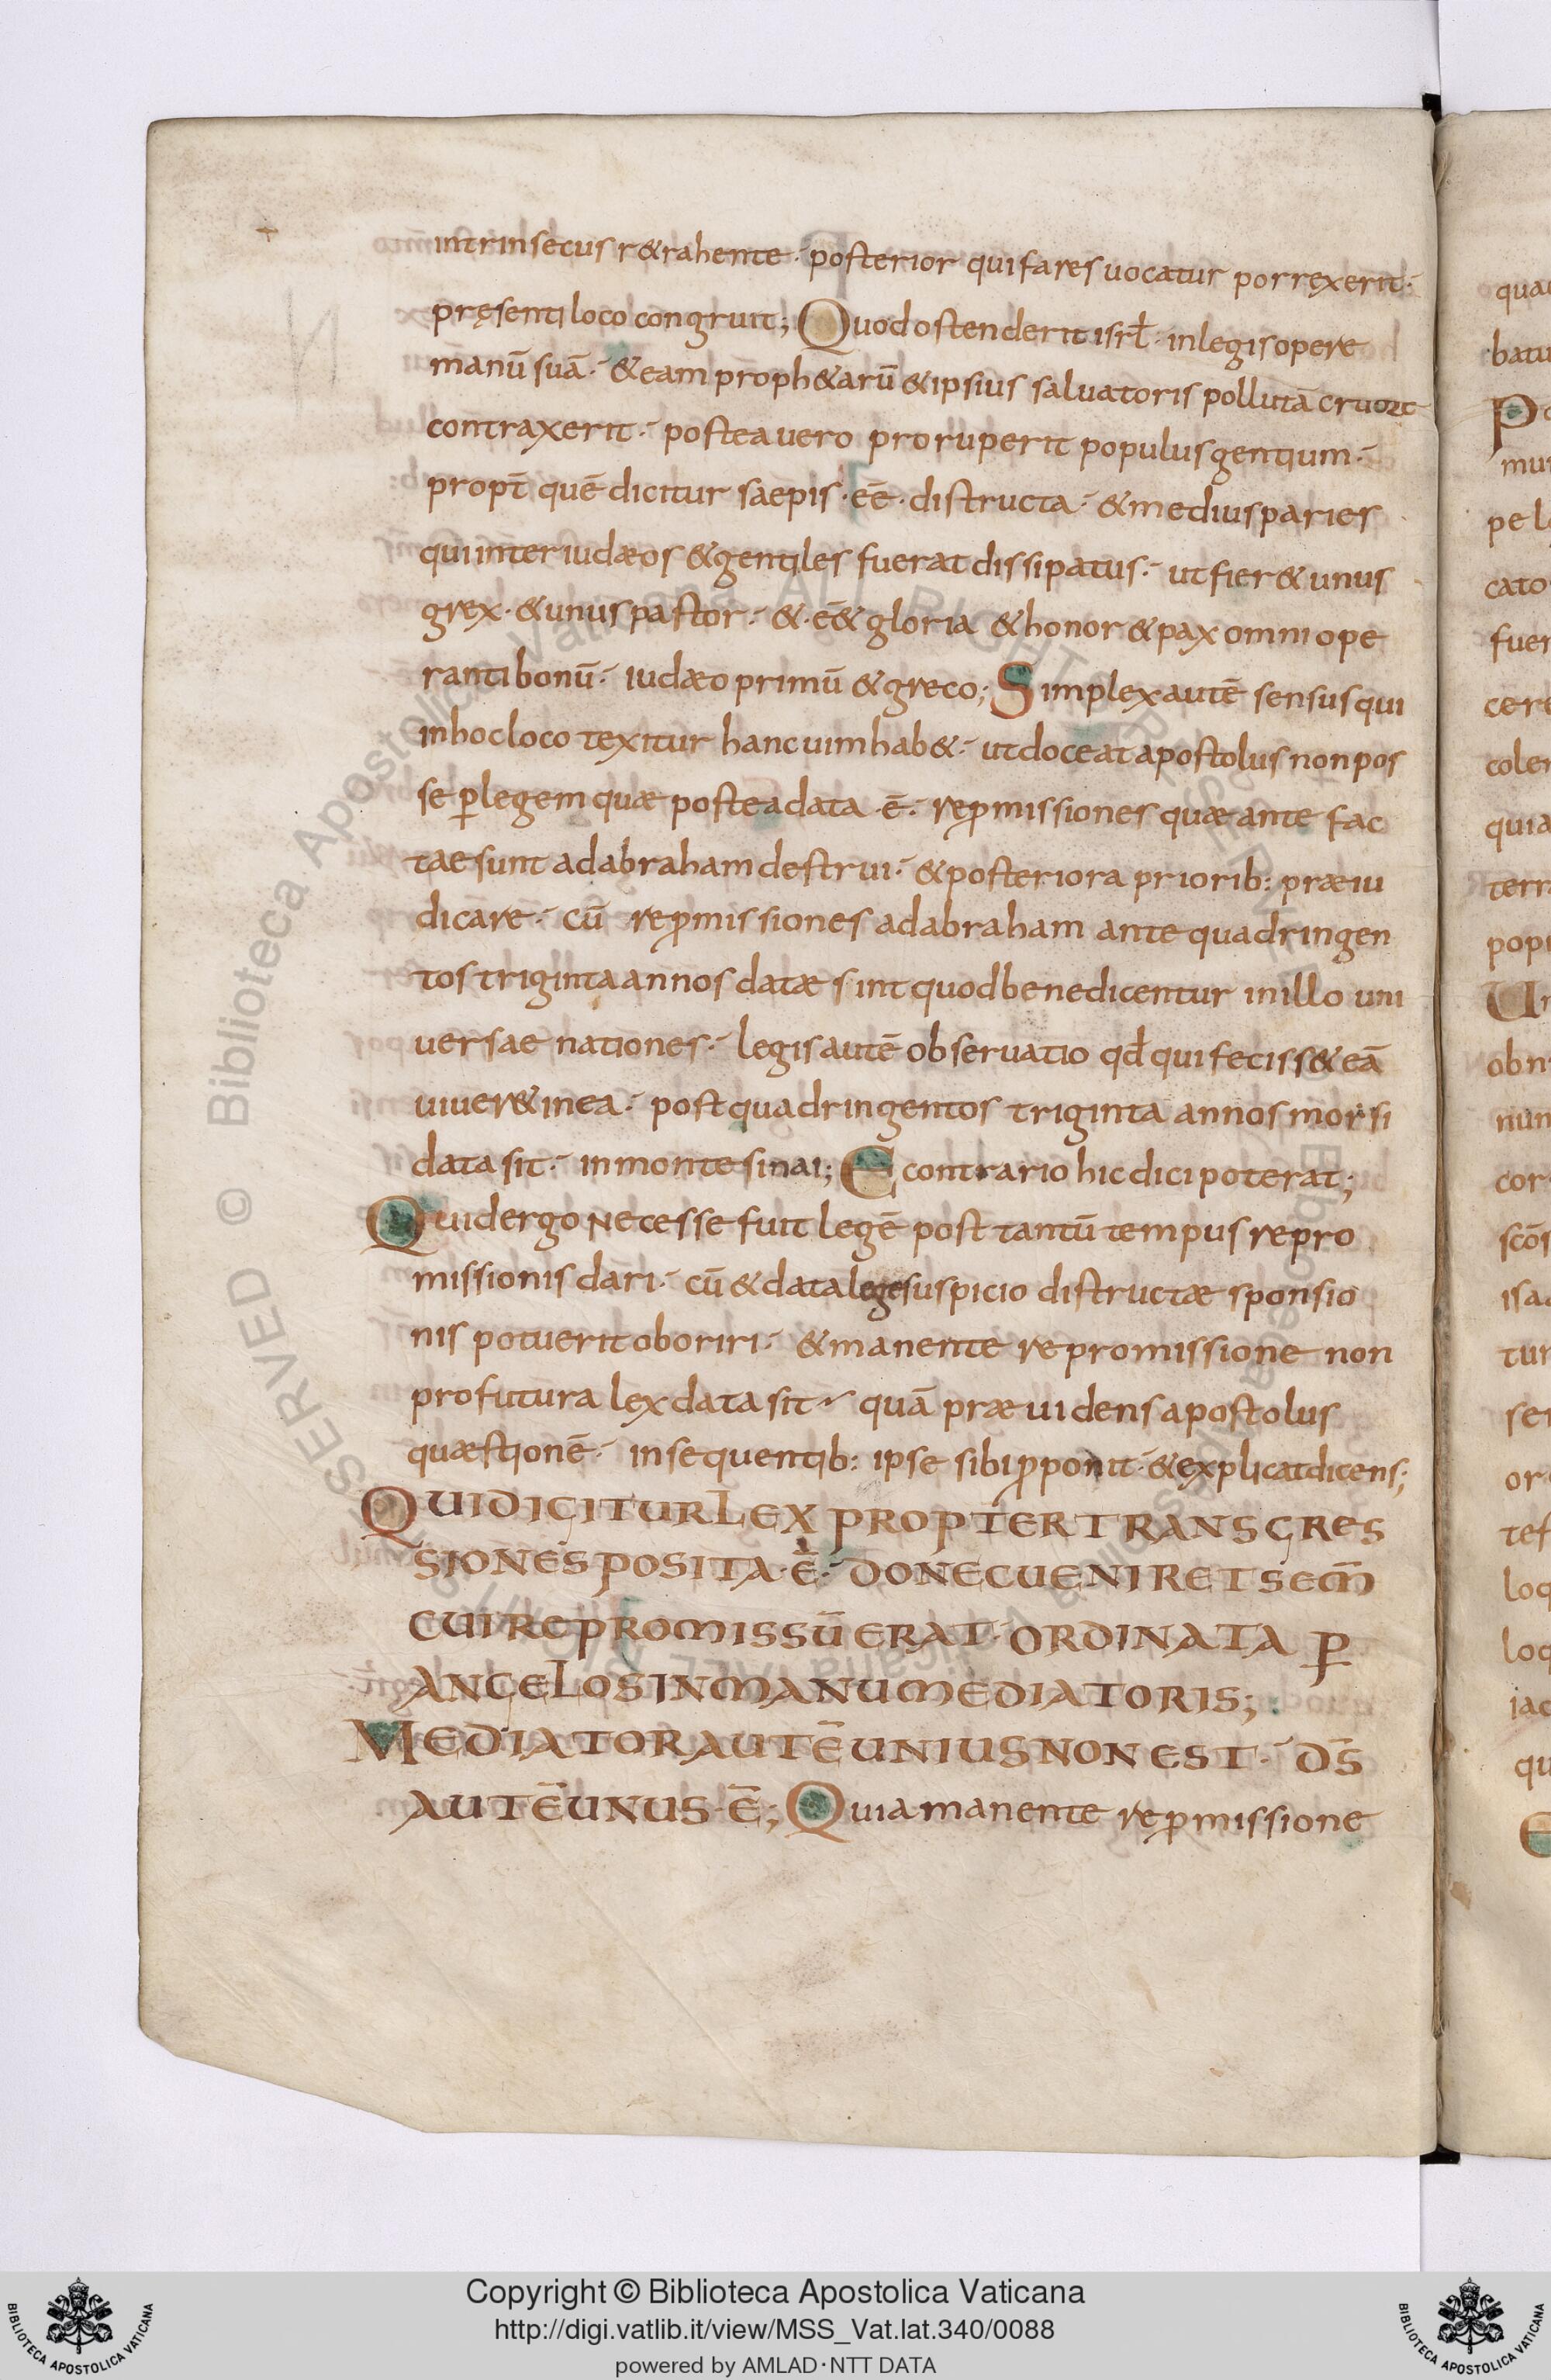 intrinsecus r&rahente· posterior qui fares uocatur porrexerit·
pręsenti loco congruit; Quod ostenderit isrł· in legis opere
manū suā· & eam proph&arū & ipsius saluatoris pollutā cruore
contraxerit· postea uero proruperit populus gentium·
propt̄ quē dicitur saepis· eē· distructa· & medius paries
qui inter iudæos & gentiles fuerat dissipatus· ut fier& unus
grex· & unus pastor· &· ē& gloria & honor & pax omni ope
ranti bonū· iudæo primū & greco; Simplex autē sensus qui
in hoc loco texitur hanc uim hab&· ut doceat apostolus non pos
se ꝑ legem quæ postea data ·ē· reꝓmissiones quæ ante fac
tae sunt ad abraham destrui· & posteriora priorib: præiu
dicare· cū reꝓmissiones ad abraham ante quadringen
tos triginta annos datæ sint quod benedicentur in illo uni
uersae nationes· legis autē obseruatio qđ qui feciss& eā
uiuer& in ea· post quadringentos triginta annos morsi
data sit· in monte sinai; E contrario hic dici poterat;
Quid ergo necesse fuit legē post tantū tempus repro
missionis dari· cū & data lege suspicio distructæ sponsio
nis potuerit oboriri· & manente repromissione non
profutura lex data sit· quā præuidens apostolus
quæstionē· in sequentib: ipse sibi ꝓponit· & explicat dicens;
QUI DICITUR LEX PROPTER TRANSGRES
SIONES POSITA ·Ē· DONEC UENIRET SEM̄
CUI REPROMISSŪ ERAT· ORDINATA Ꝑ
ANGELOS IN MANU MEDIATORIS;
MEDIATOR AUTĒ UNIUS NON EST· DS̄
AUTĒ UNUS ·Ē; Quia manente reꝓmissione
© Biblioteca Apostolica Vaticana ALL RIGHTS RESERVED
Copyright © Biblioteca Apostolica Vaticana
http://digi.vatlib.it/view/MSS_Vat.lat.340/0088
powered by AMLAD·NTT DATA
BIBLIOTECA APOSTOLICA VATICANA
BIBLIOTECA APOSTOLICA VATICANA